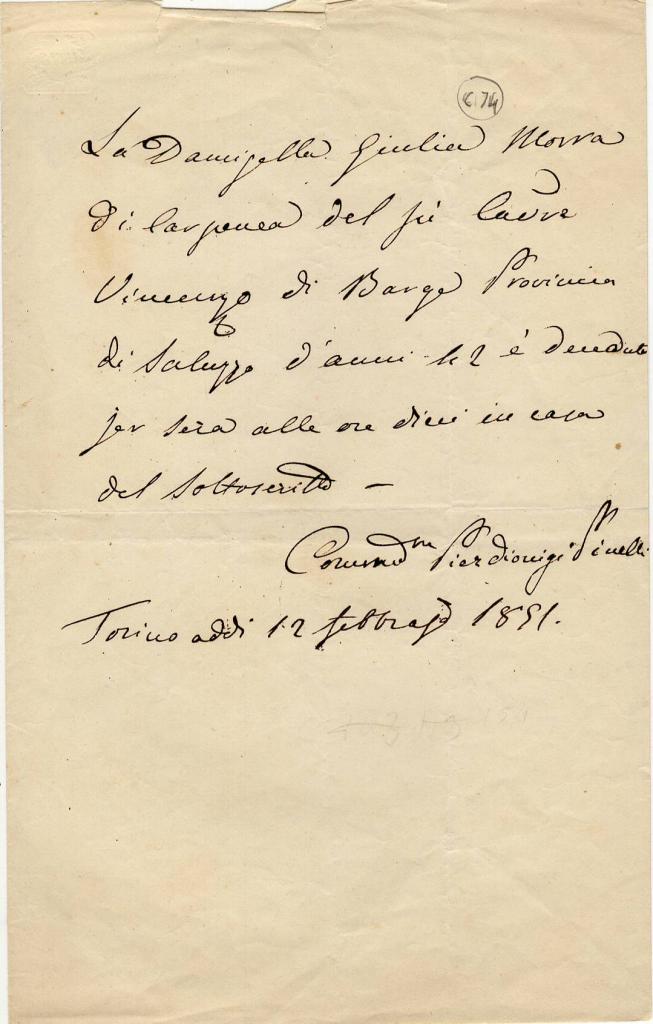 674
La Damigella Giulia Morra
di Carpenea del fù Cav.re
Vincenzo di Barge Provincia
di Saluzzo d'anni 42 è decaduta
jer sera alle ore dieci in casa
del Sottoscritto –
Commd.re Pierdionigi Pinelli
Torino addì 12 febbrajo 1851.